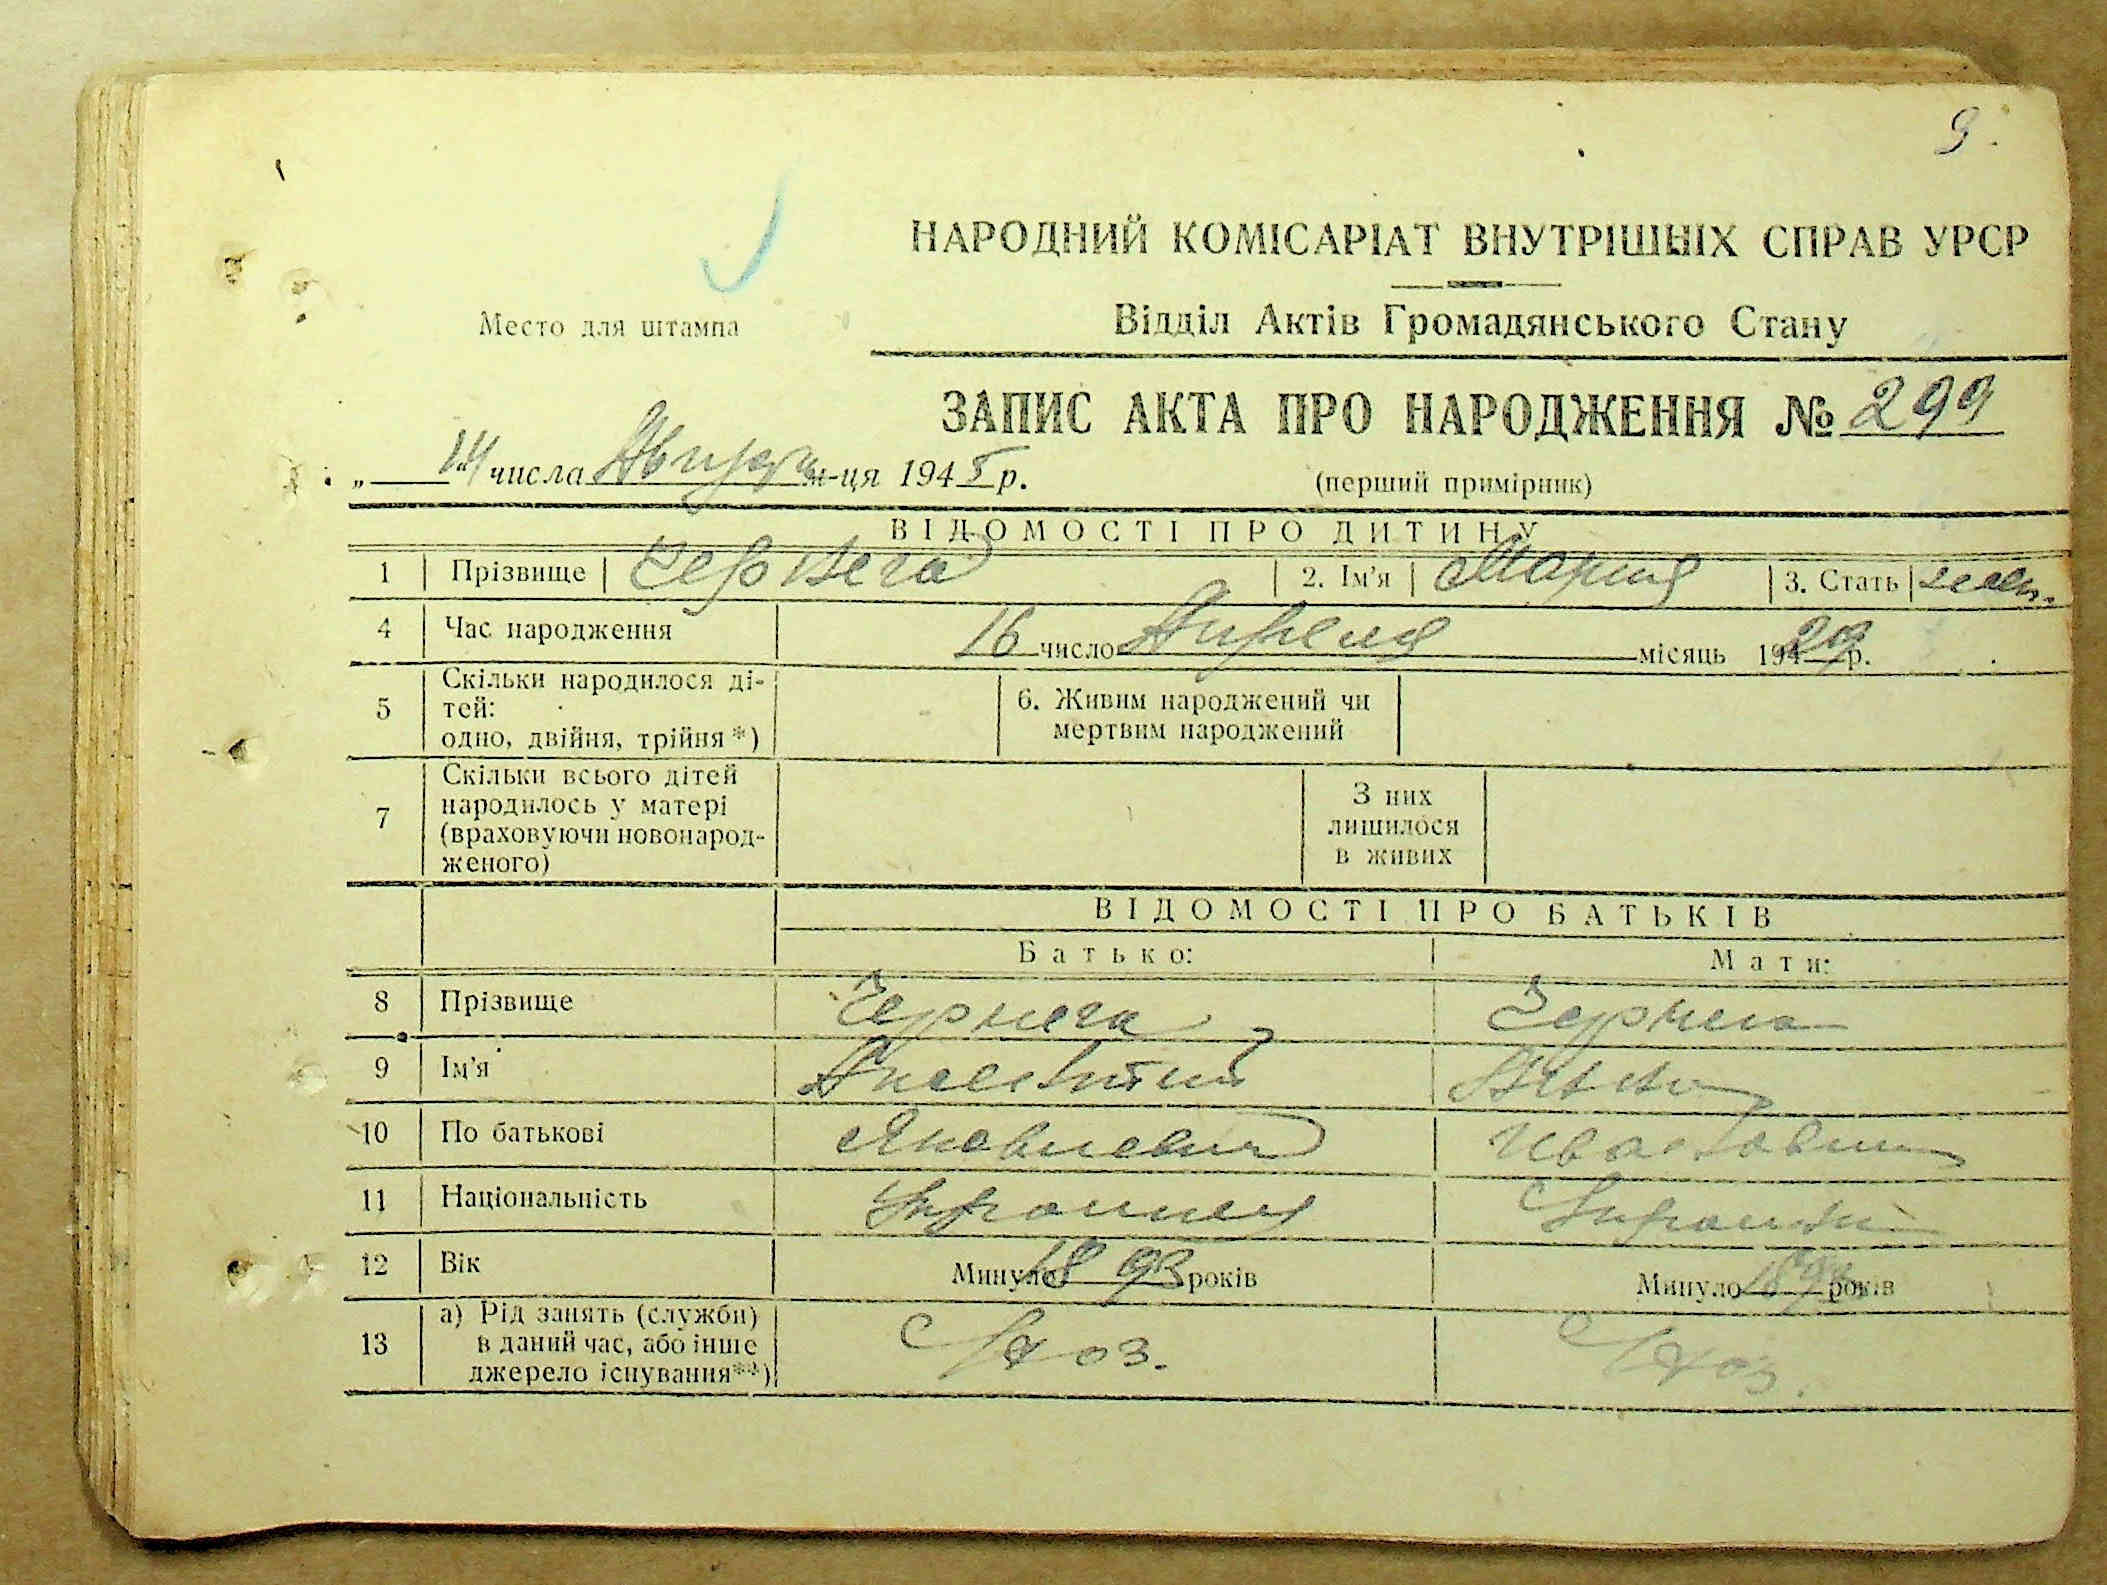 9.
НАРОДНИЙ КОМІСАРІАТ ВНУТРІШНІХ СПРАВ УРСР
Место для штампа
Відділ Актів Громадянського Стану
ЗАПИС АКТА ПРО НАРОДЖЕННЯ № 299
„ 14 " числа Августа м-ця 1945 р.
(перший примірник)
ВІДОМОСТІ ПРО ДИТИНУ
1 Прізвище Чернега 2. Ім'я Мария 3. Стать жен.
4 Час народження 16 число Апреля місяць 1929 р.
5 Скільки народилося дітей: одно, двійня, трійня *) 6. Живим народжений чи мертвим народжений
7 Скільки всього дітей народилось у матері (враховуючи новонародженого) З них лишилося в живих
ВІДОМОСТІ ПРО БАТЬКІВ
Батько: Мати:
8 Прізвище Чернега Чернега
9 Ім'я
10 По батькові Яковлевич Ивановна
11 Національність Украинец Украинка
12 Вік Минуло 1893 років Минуло 1899 років
13 а) Рід занять (служби) в даний час, або інше джерело існування**) С/хоз. С/хоз.